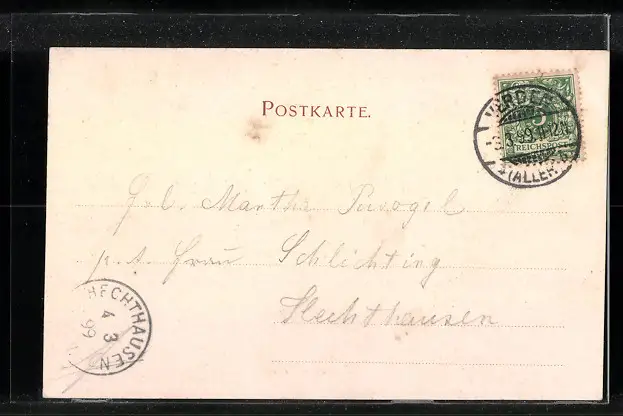 POSTKARTE.
5
REICHSPOST
VERDEN
3.3.99.11-12N.
(ALLER)
Martha
p. A. Frau Schlichting
Hechthausen
HECHTHAUSEN
4
3
99